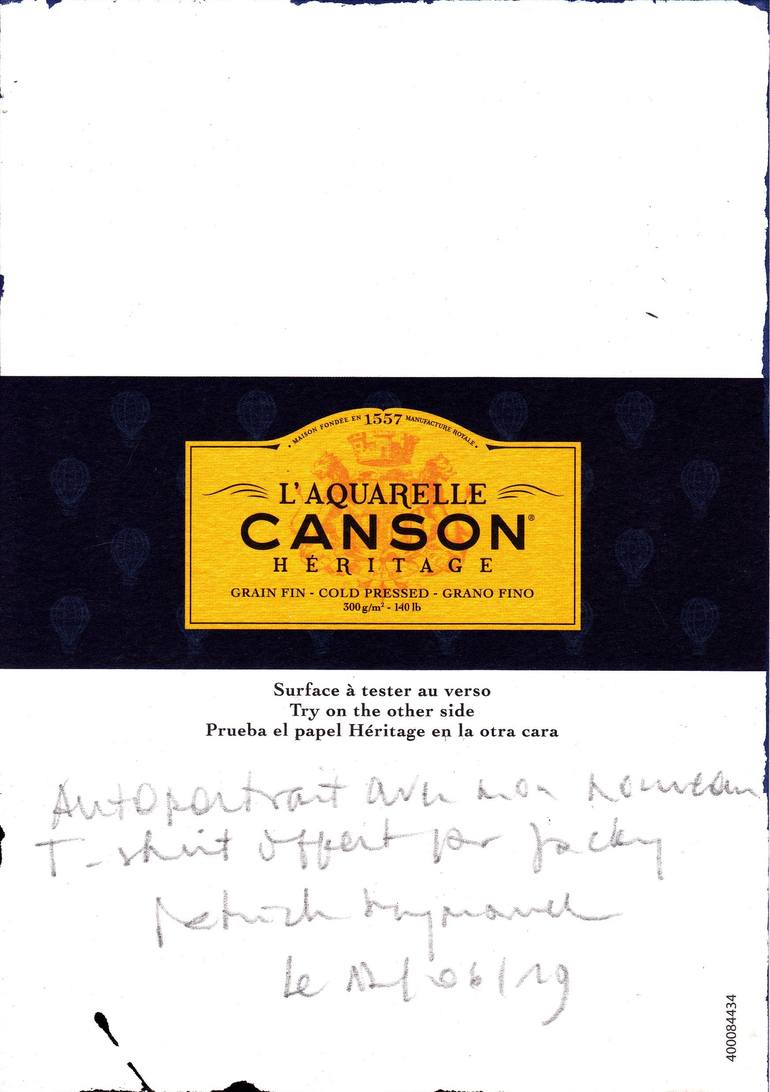 MAISON FONDÉE EN 1557 MANUFACTURE ROYALE
L'AQUARELLE
CANSON®
HÉRITAGE
GRAIN FIN - COLD PRESSED - GRANO FINO
300 g/m² - 140 lb
Surface à tester au verso
Try on the other side
Prueba el papel Héritage en la otra cara
Autoportrait avec mon nouveau
T-shirt offert par Jacky
Patrick
Le 12/06/19
400084434